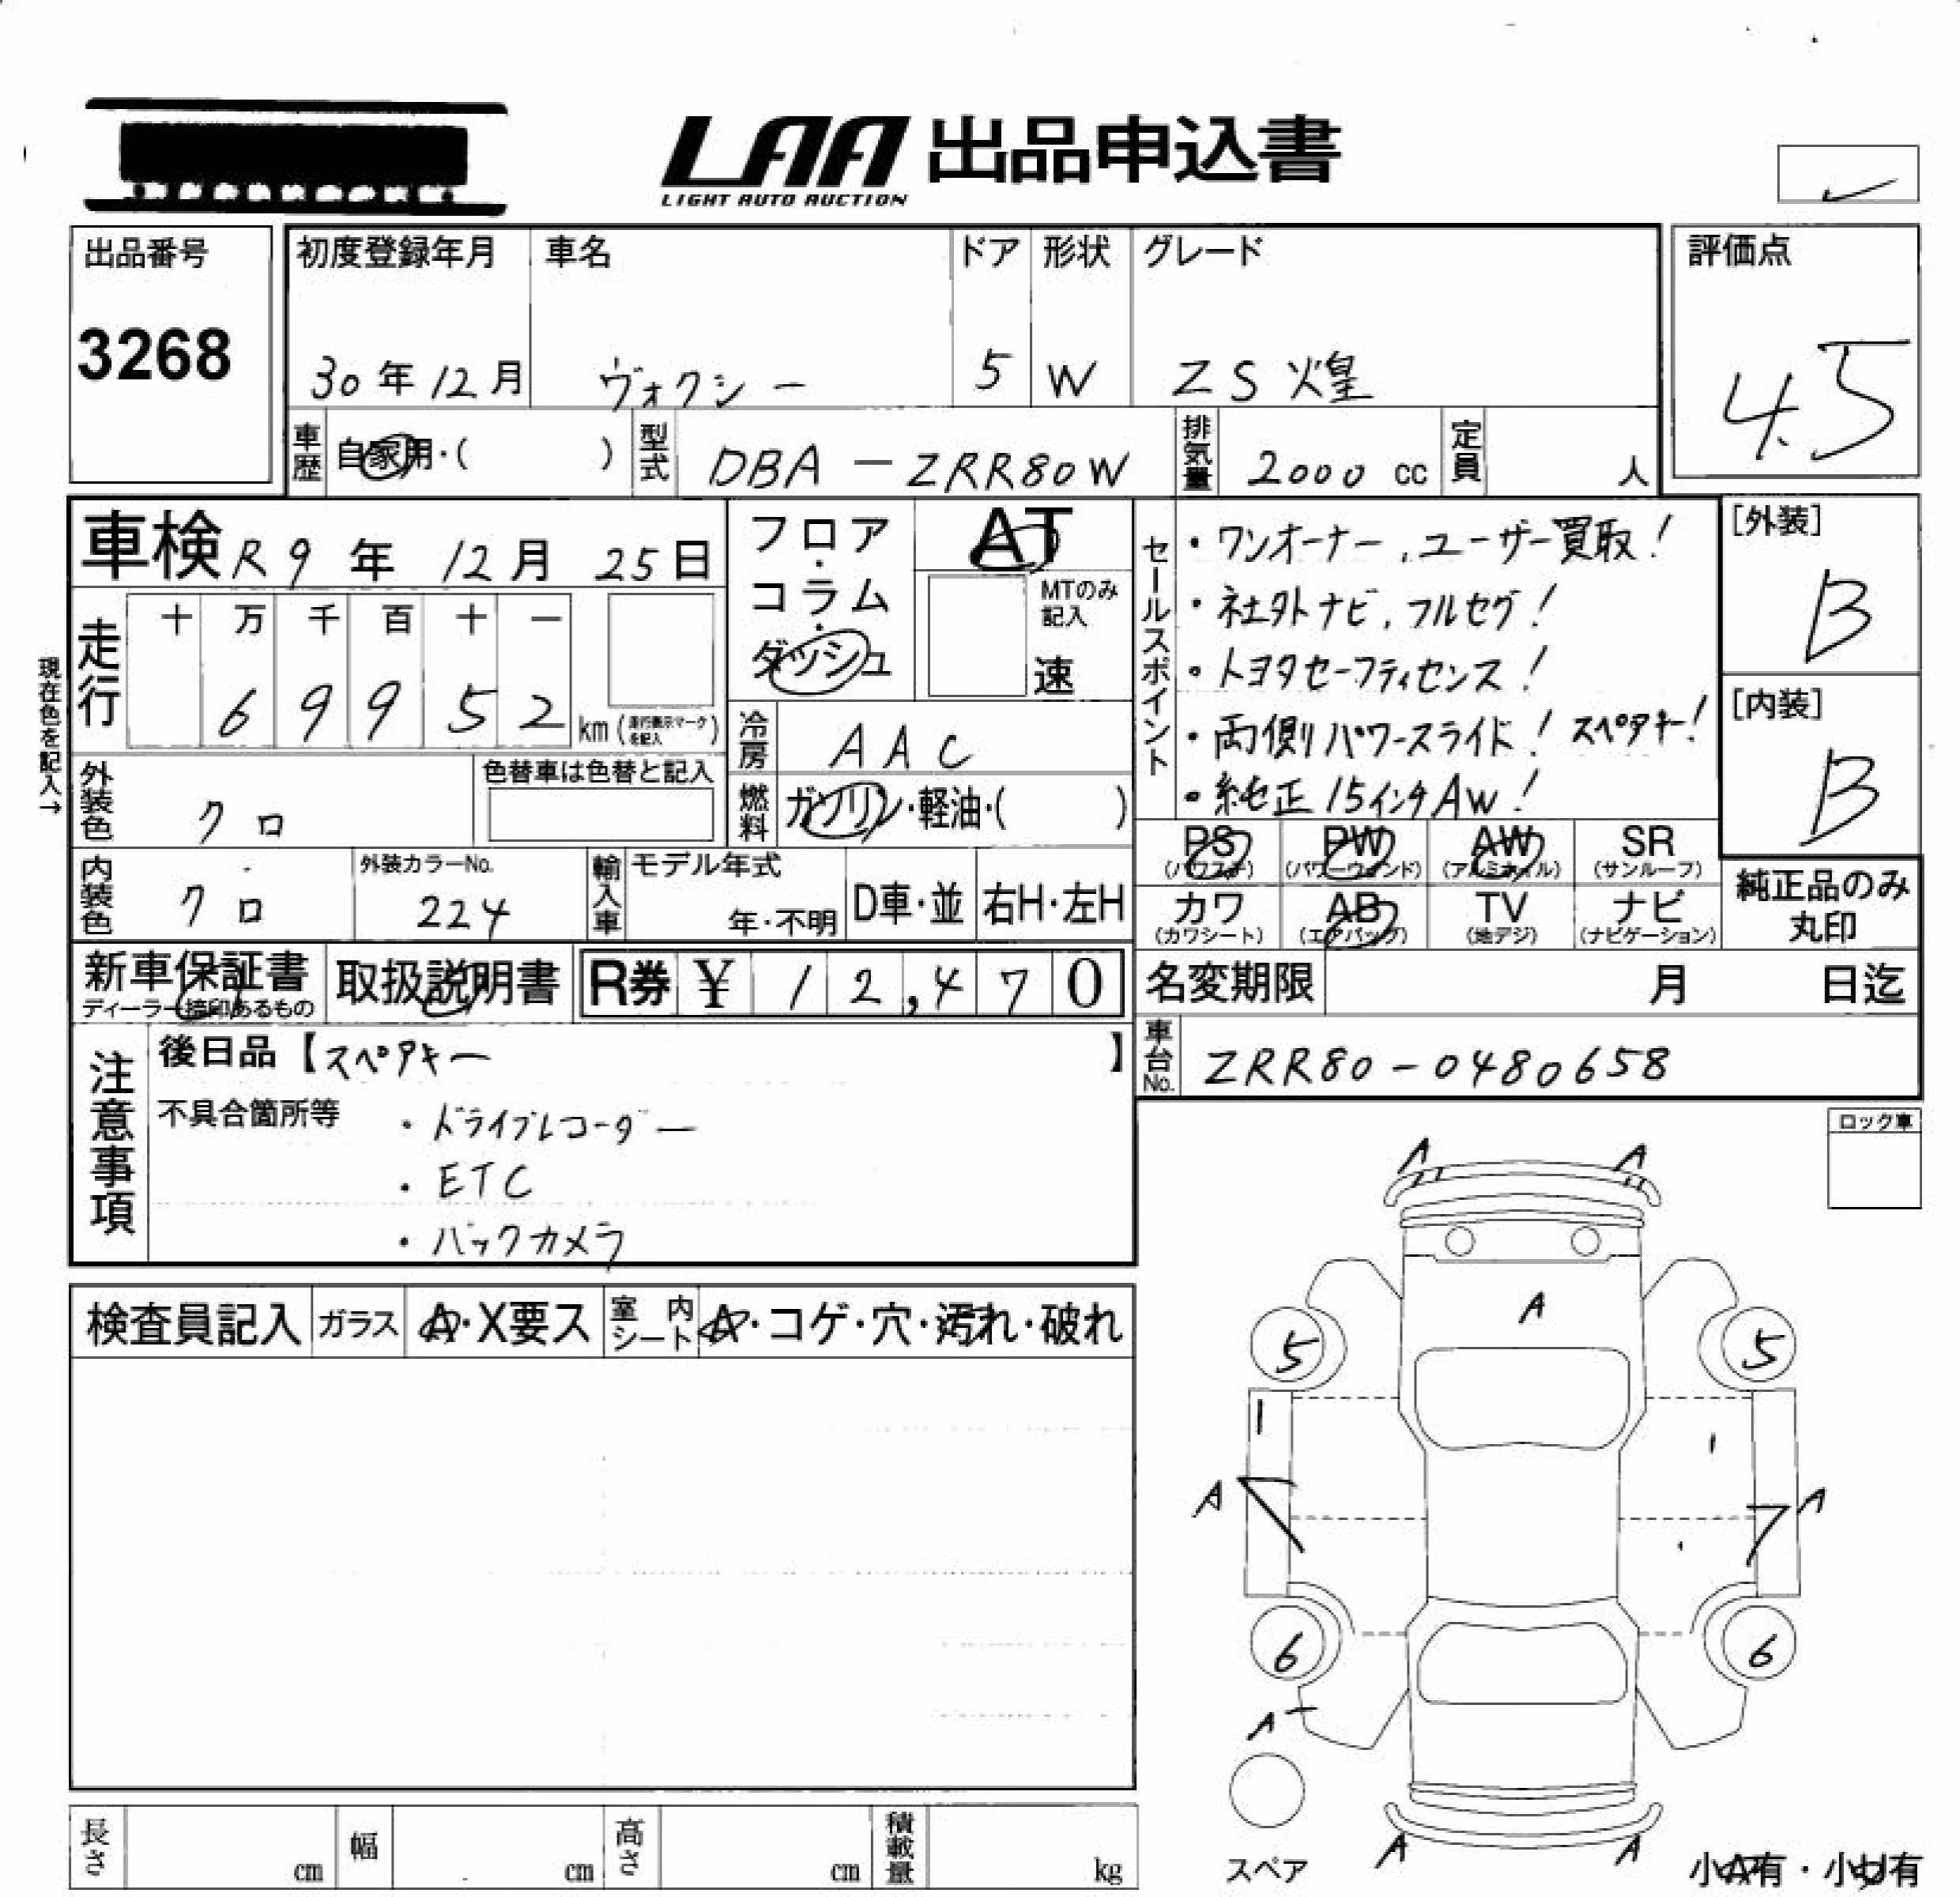 LAA 出品申込書
LIGHT AUTO AUCTION
出品番号
3268
初度登録年月
30年12月
車名
ヴォクシー
ドア
5
形状
W
グレード
ZS 煌
評価点
4.5
車歴
自家用・( )
型式
DBA - ZRR80W
排気量
2000 cc
定員
人
車検 R9年 12月 25日
走行
十 万 千 百 十 一
6 9 9 5 2
km (走行表示マークを記入)
現在色を記入→
外装色
クロ
色替車は色替と記入
内装色
クロ
外装カラーNo.
224
フロア・コラム・ダッシュ
AT
MTのみ記入
速
冷房
AAC
燃料
ガソリン・軽油・( )
輸入車
モデル年式
年・不明
D車・並
右H・左H
セールスポイント
・ワンオーナー、ユーザー買取!
・社外ナビ、フルセグ!
・トヨタセーフティセンス!
・両側パワースライド! スペアキー!
・純正15インチAW!
[外装]
B
[内装]
B
PS (パワステ)
PW (パワーウィンド)
AW (アルミホイル)
SR (サンルーフ)
カワ (カワシート)
AB (エアバッグ)
TV (地デジ)
ナビ (ナビゲーション)
純正品のみ丸印
新車保証書
ディーラー捺印あるもの
取扱説明書
R券 ¥ 12,470
名変期限
月 日迄
車台No.
ZRR80-0480658
注意事項
後日品【スペアキー 】
不具合箇所等
・ドライブレコーダー
・ETC
・バックカメラ
ロック車
検査員記入
ガラス
A・X要ス
室内シート
A・コゲ・穴・汚れ・破れ
A A
A
5 5
A A
6 6
A
A A
スペア
小A有・小U有
長さ cm
幅 cm
高さ cm
積載量 kg